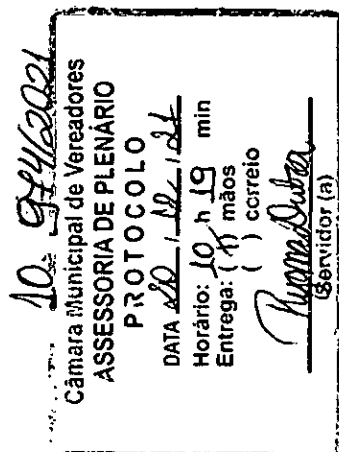 10.974/2021
Câmara Municipal de Vereadores
ASSESSORIA DE PLENÁRIO
PROTOCOLO
DATA 20 / 12 / 21
Horário: 10 h 19 min
Entrega: ( ) mãos
( ) correio
(Servidor (a)